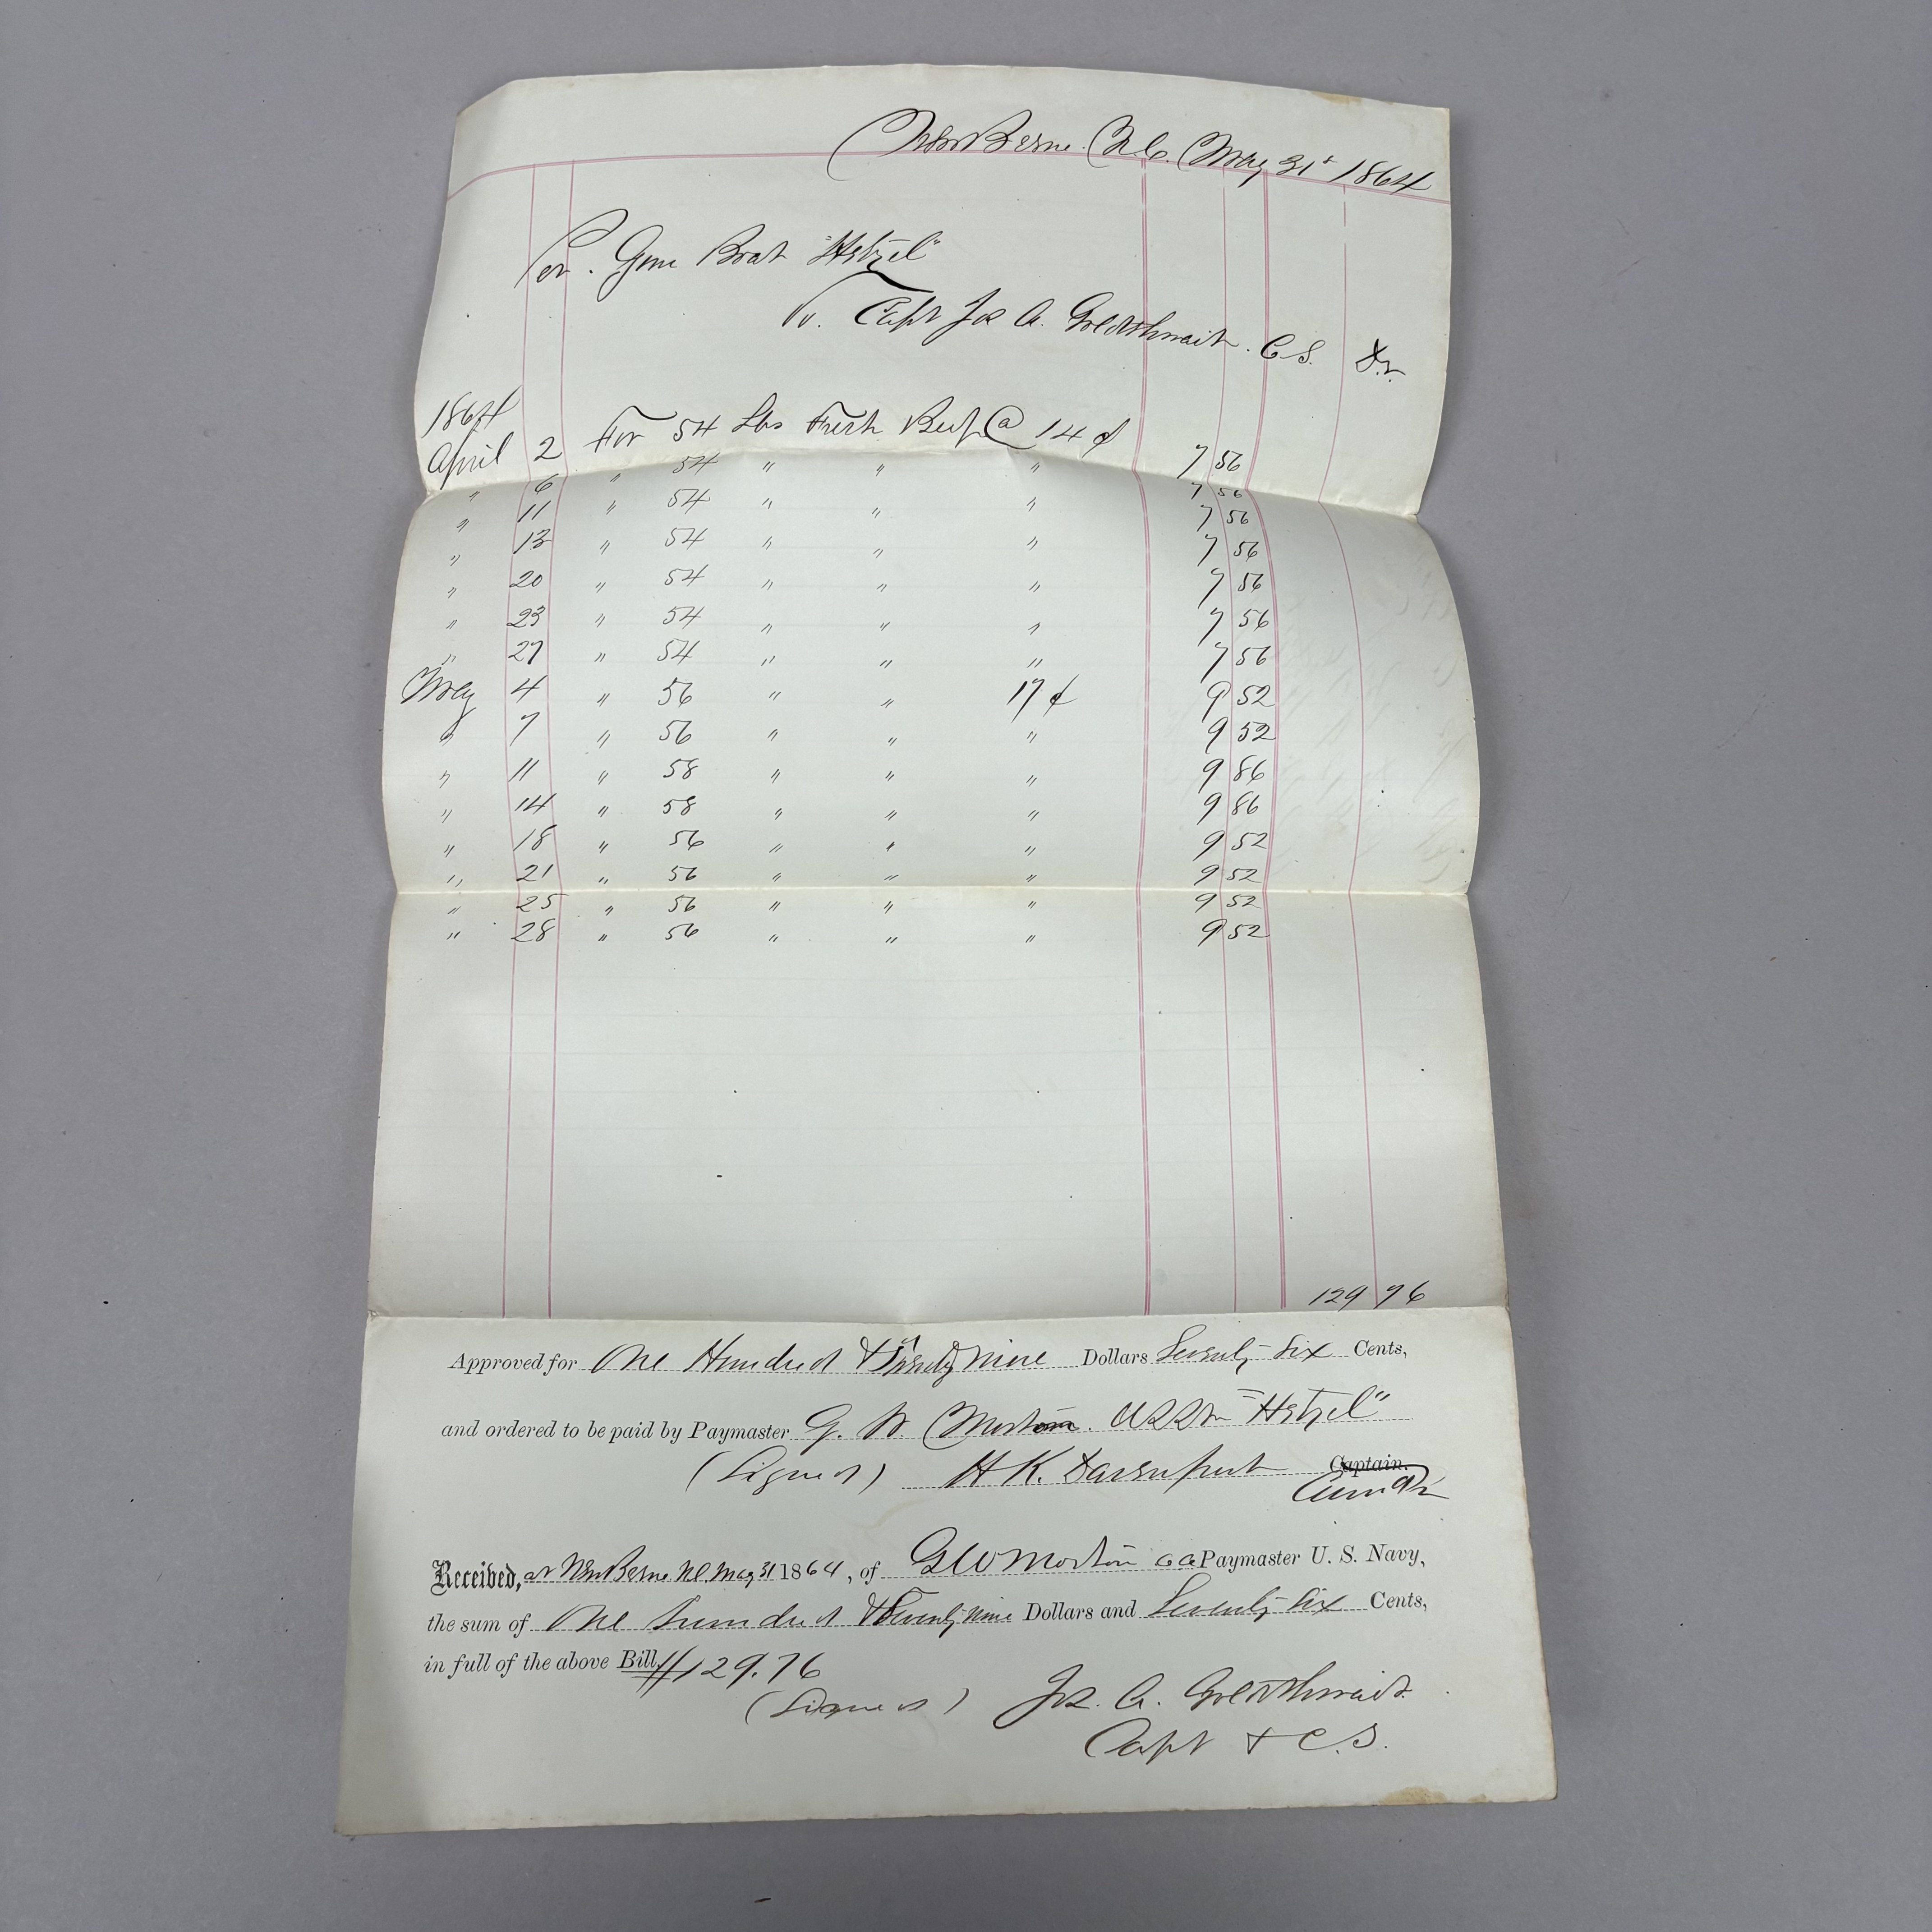 NewBerne. N.C. May 31st 1864
For. Gun Boat "Hetzel"
To. Capt Jos A. Goldthwait. C.S. Dr.
1864
April 2 For 54 Lbs Fresh Beef @ 14 ¢ 7 56
" 6 " 54 " " " 7 56
" 11 " 54 " " " 7 56
" 13 " 54 " " " 7 56
" 20 " 54 " " " 7 56
" 23 " 54 " " " 7 56
" 27 " 54 " " " 7 56
May 4 " 56 " " 17 ¢ 9 52
" 7 " 56 " " " 9 52
" 11 " 58 " " " 9 86
" 14 " 58 " " " 9 86
" 18 " 56 " " " 9 52
" 21 " 56 " " " 9 52
" 25 " 56 " " " 9 52
" 28 " 56 " " " 9 52
129 76
Approved for One Hundred & Twenty nine Dollars Seventy-Six Cents,
and ordered to be paid by Paymaster G. W. Morton. USS "Hetzel"
(Signed) H K. Davenport Captain.
Comdr
Received, at NewBerne NC. May 31 1864, of G W Morton aa Paymaster U. S. Navy,
the sum of One hundred & Twenty-nine Dollars and Seventy-Six Cents,
in full of the above Bill, $129.76
(Signed) Jos. A. Goldthwait.
Capt & C.S.